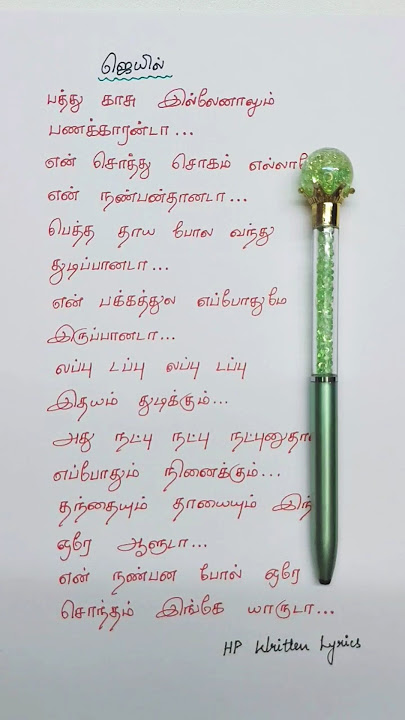 ஜெயில்
பத்து காசு இல்லேனாலும்
பணக்காரன்டா...
என் சொத்து சொகம்
என் நண்பன்தானடா...
பெத்த தாய போல வந்து
துடிப்பானடா...
என் பக்கத்துல எப்போதுமே
இருப்பானடா...
லப்பு டப்பு லப்பு டப்பு
இதயம் துடிக்கும்...
அது நட்பு நட்பு
எப்போதும் நினைக்கும்...
தந்தையும் தாயையும்
ஒரே ஆளுடா...
என் நண்பன போல் ஒரே
சொந்தம் இங்கே யாருடா...
HP Written Lyrics